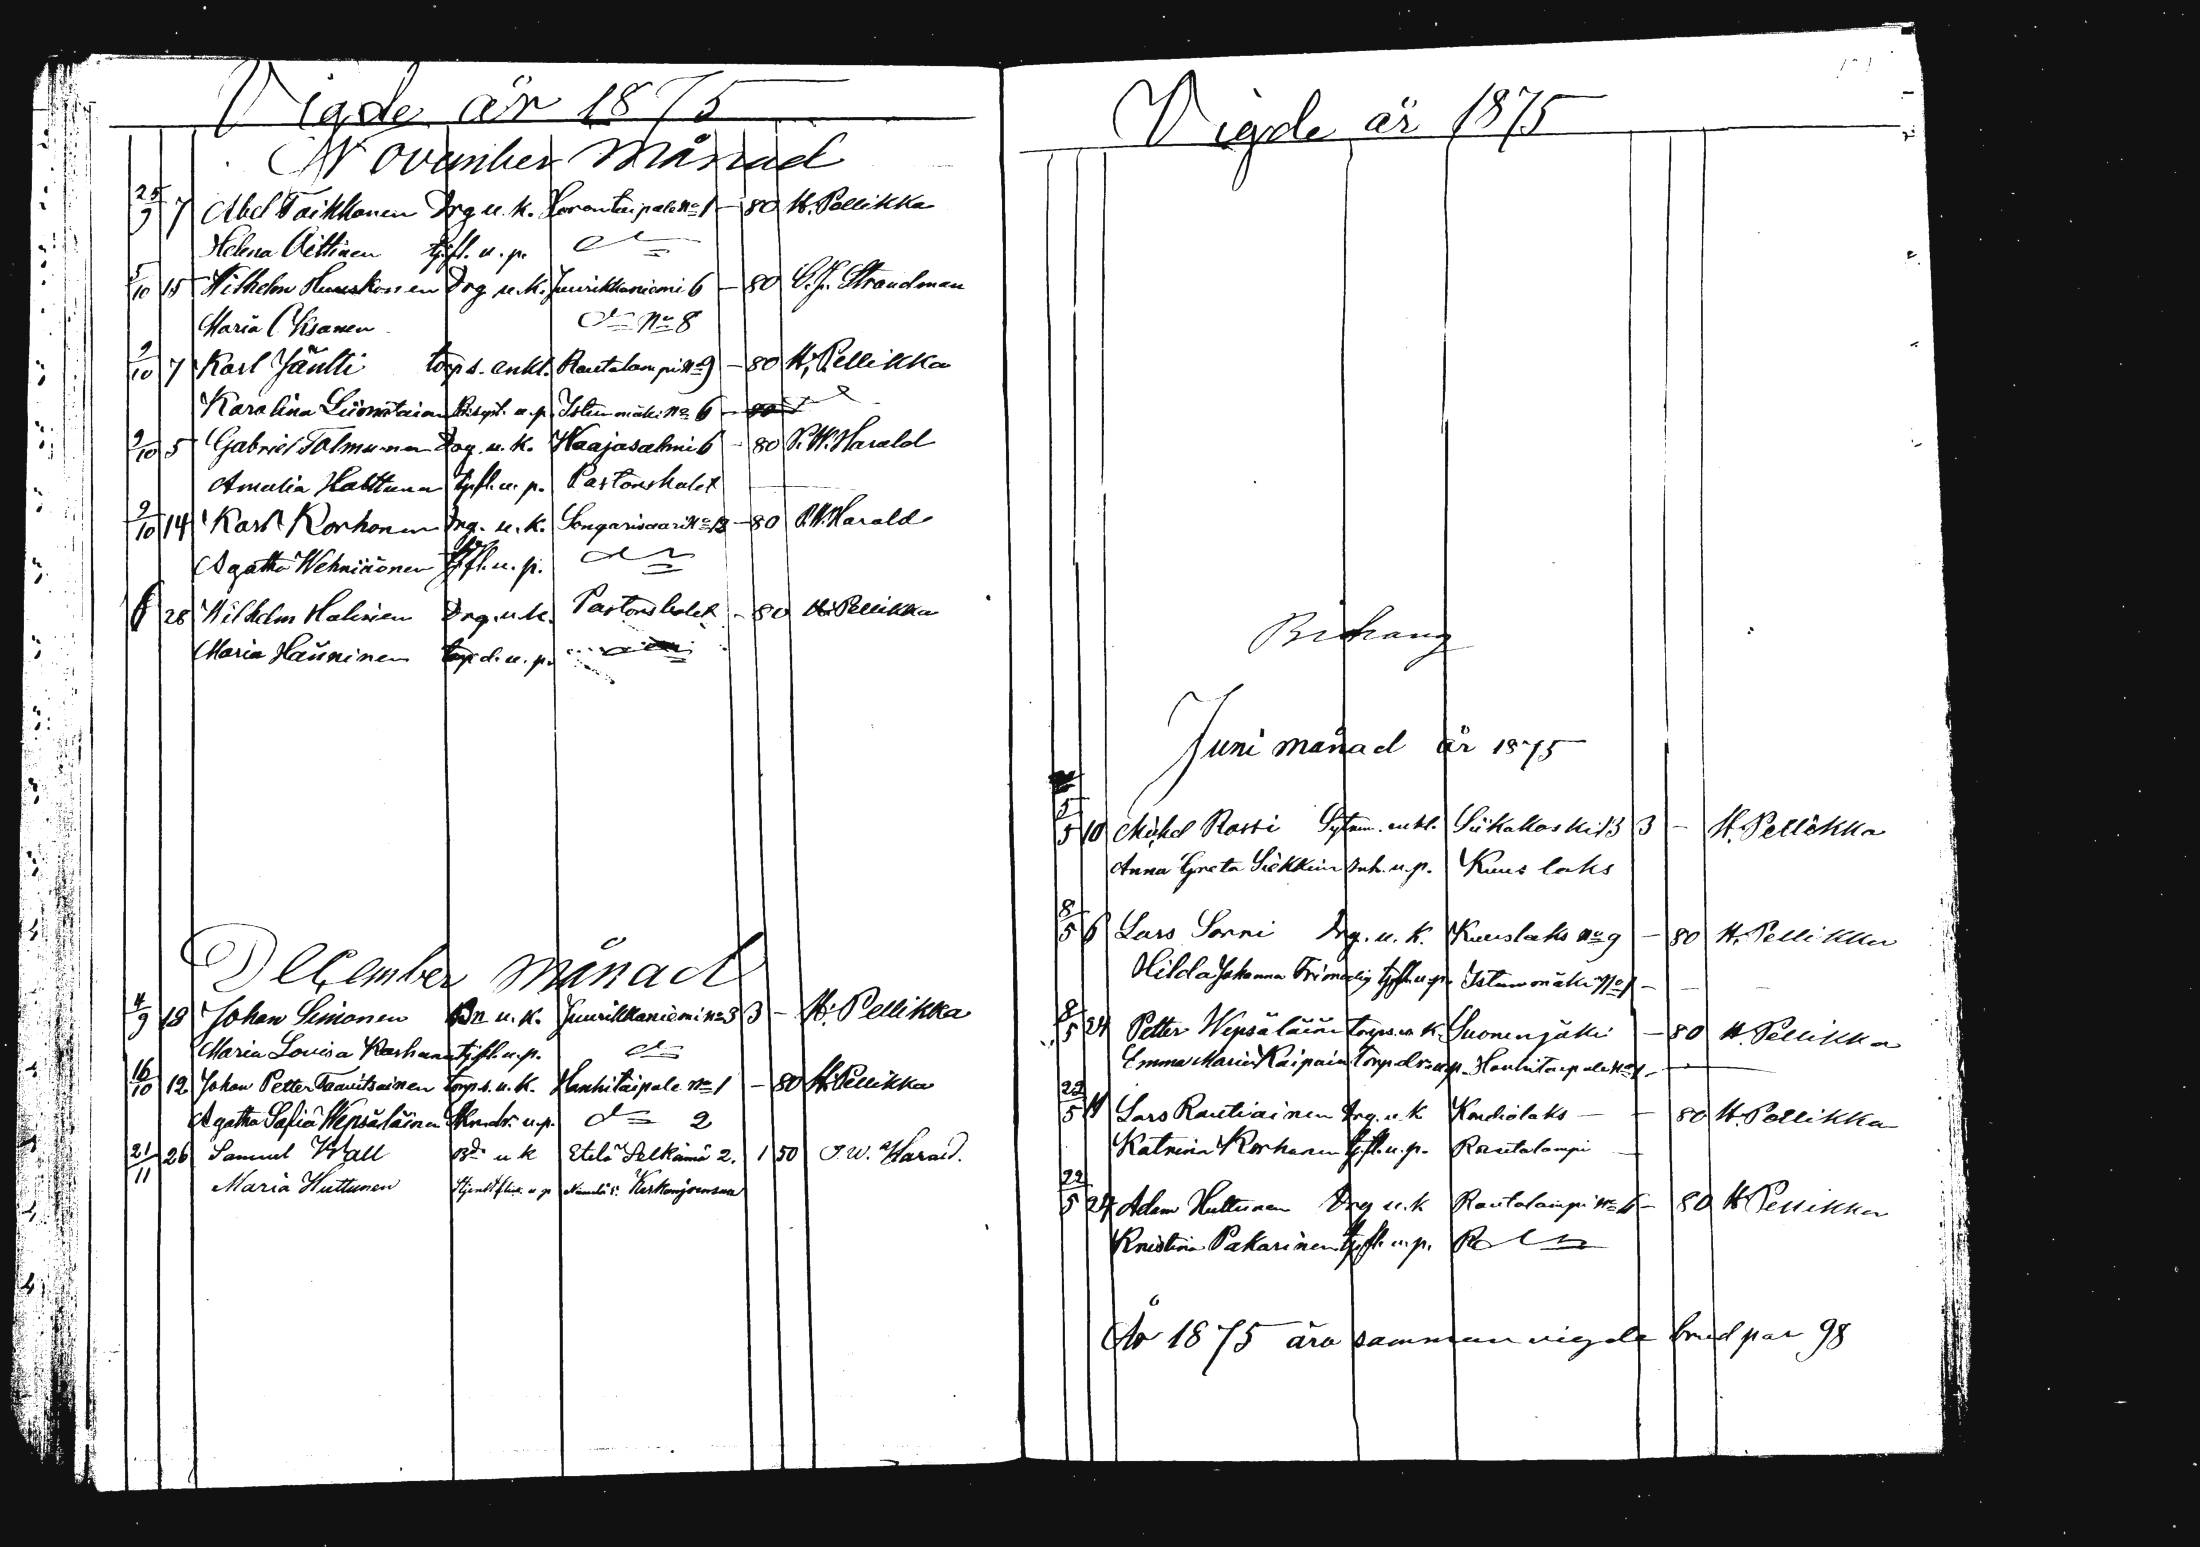 Vigde år 1875
November Månad
25/9 7 Abel Taikkonen Drg u. k. Horontaipale No 1 - 80 H. Pellikka
Helena Oittinen tjfl. u. p. d:o
5/10 15 Wilhelm Huuskonen Drg u. k. Juurikkaniemi 6 - 80 C. J. Strandman
Maria Oksanen d:o No 8
9/10 7 Karl Jäntti torps. enkl. Rautalampi No 9 - 80 H. Pellikka
Karolina u. p. Istunmäki No 6
9/10 5 Gabriel Tolmunen Drg. u. k. Waajasalmi 6 - 80 P. W. Harald
Amalia Halttunen tjfl. u. p. Pastorsbolet
9/10 14 Karl Korhonen Drg. u. k. Sengarisaari No 12 - 80 P. W. Harald
Agatha Wehniäinen tjfl. u. p. d:o
28 Wilhelm Halinen Drg. u. k. Pastorsbolet - 80 H. Pellikka
Maria Hänninen torp d. u. p.
December Månad
4/9 18 Johan Simonen Bn u. k. Juurikkaniemi No 3 3 - H. Pellikka
Maria Lovisa Korhonen tjfl. u. p. d:o
16/10 12 Johan Petter Taavitsainen torp. s. u. k. Hankitaipale No 1 - 80 H. Pellikka
Agatha Sofia Wepsäläinen u. p. d:o 2
21/11 26 Samuel Wall u k Etelä Selkämä 2. 1 50 P. W. Harald.
Maria Huttunen u p
Vigde år 1875
Bihang
Juni månad år 1875
5/5 10 Michel Rossi Sytnm. enkl. Siikakoski 13 3 - H. Pellikka
Anna Greta Siekkinen Inh. u. p. Kuuslaks
8/5 6 Lars Sorri Drg. u. k. Kuuslaks No 9 - 80 H. Pellikka
Hilda Johanna tjfl. u. p. Istunmäki No 1 -
8/5 24 Petter Wepsäläinen torps. u. k. Suonenjoki - 80 H. Pellikka
Emma Maria Kaipainen Torp dr. u. p. Hankitaipale No 1 -
22/5 14 Lars Rautiainen Drg. u. k Kondiolaks - - 80 H. Pellikka
Katrina Korhonen tjfl. u. p. Rautalampi
22/5 24 Adam Huttunen Drg u. k Rautalampi No 6 - 80 H Pellikka
Kristina Pakarinen tjfl. u. p. R d:o
År 1875 äro sammanvigde brudpar 98